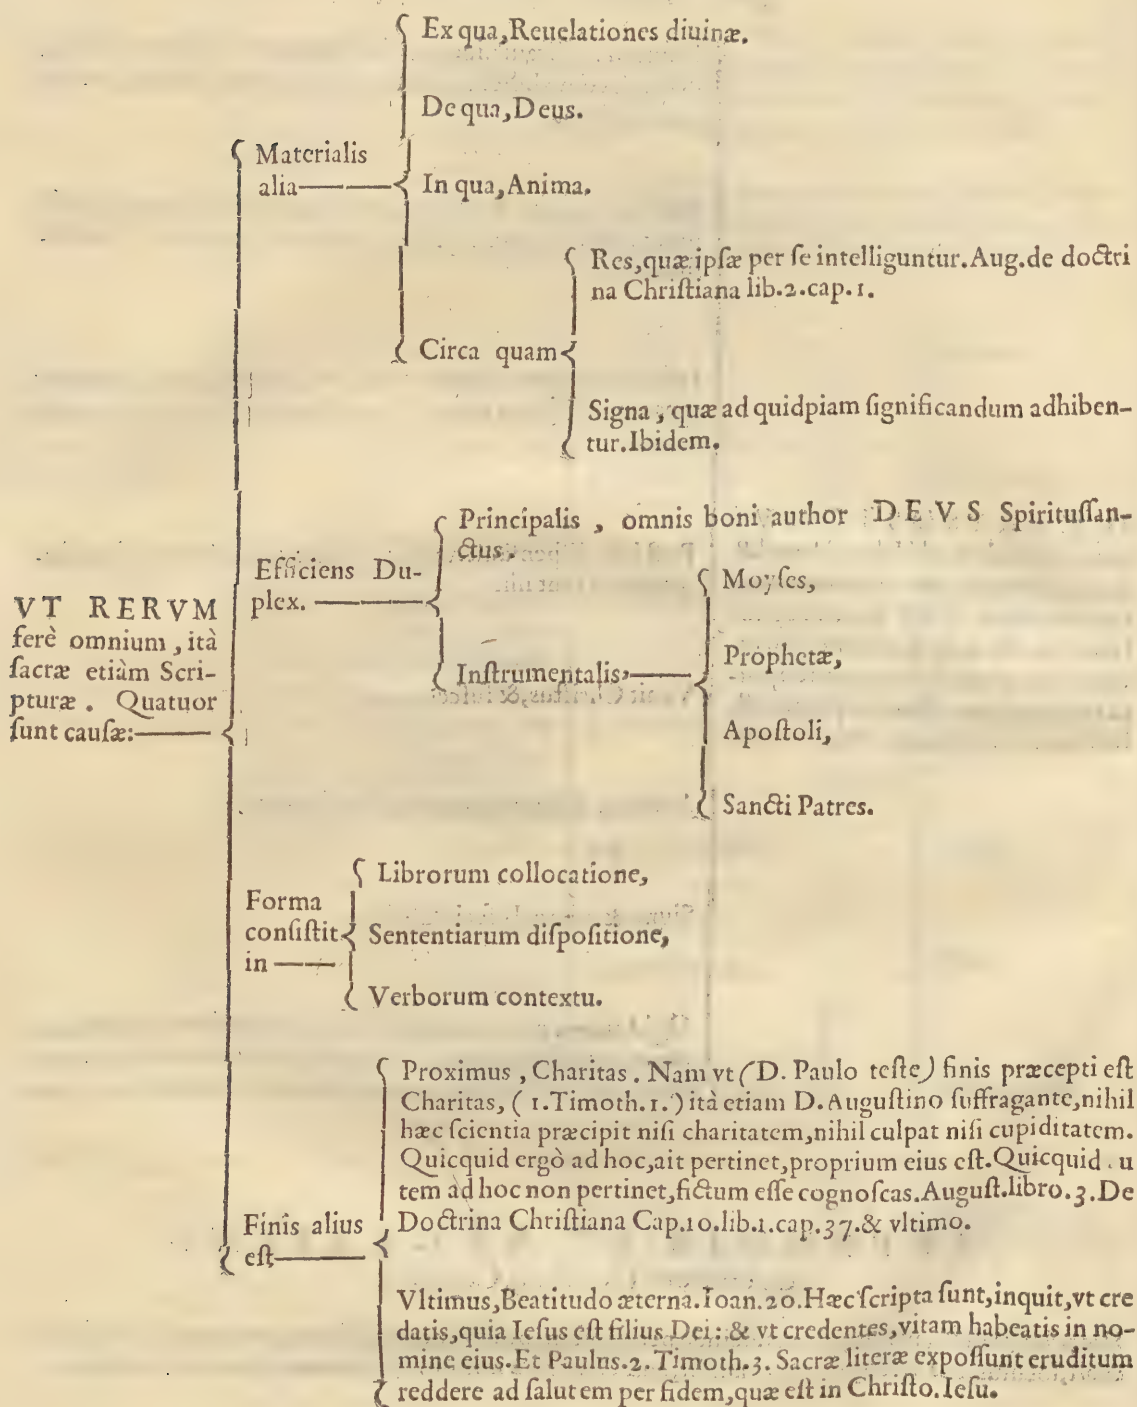 Ex qua, Reuelationes diuinæ.
De qua, Deus.
Materialis
alia
In qua, Anima.
Circa quam
Res, quæ ipſæ per ſe intelliguntur. Aug. de doctri
na Chriſtiana lib.2.cap.1.
Signa, quæ ad quidpiam ſignificandum adhiben-
tur. Ibidem.
VT RERVM
ferè omnium, ità
ſacræ etiàm Scri-
pturæ. Quatuor
ſunt cauſæ:
Efficiens Du-
plex.
Principalis, omnis boni author DEVS Spirituſſan-
ctus.
Inſtrumentalis,
Moyſes,
Prophetæ,
Apoſtoli,
Sancti Patres.
Forma
conſiſtit
in
Librorum collocatione,
Sententiarum diſpoſitione,
Verborum contextu.
Finis alius
eſt
Proximus, Charitas. Nam vt (D. Paulo teſte) finis præcepti eſt
Charitas, (1.Timoth.1.) ità etiam D. Auguſtino ſuffragante, nihil
hæc ſcientia præcipit niſi charitatem, nihil culpat niſi cupiditatem.
Quicquid ergò ad hoc, ait pertinet, proprium eius eſt. Quicquid . u
tem ad hoc non pertinet, fictum eſſe cognoſcas. Auguſt. libro.3. De
Doctrina Chriſtiana Cap.10.lib.1.cap.37.& vltimo.
Vltimus, Beatitudo æterna. Ioan.20. Hæc ſcripta ſunt, inquit, vt cre
datis, quia Ieſus eſt filius Dei: & vt credentes, vitam habeatis in no-
mine eius. Et Paulus.2.Timoth.3. Sacræ literæ expoſſunt eruditum
reddere ad ſalutem per fidem, quæ eſt in Chriſto. Ieſu.